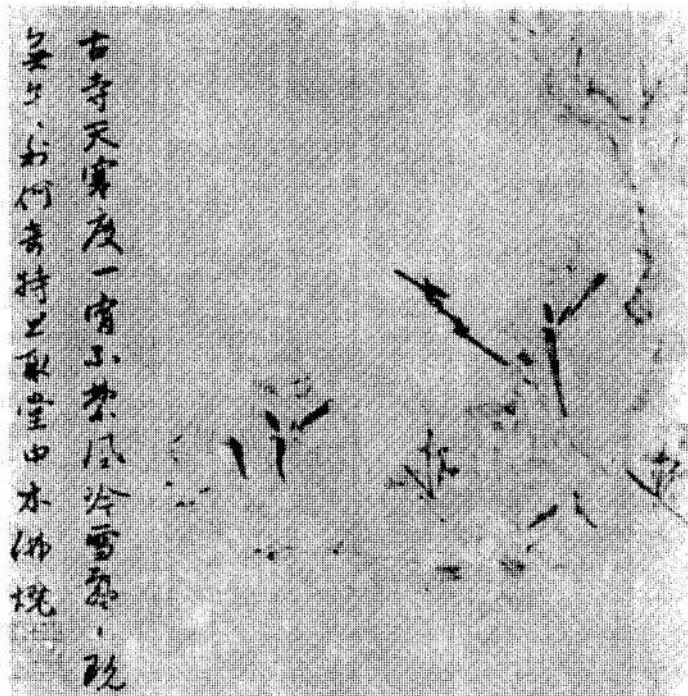 古寺天寒度一宵不禁風冷雪飄〻既
無舍利何奇特且取堂中木佛燒